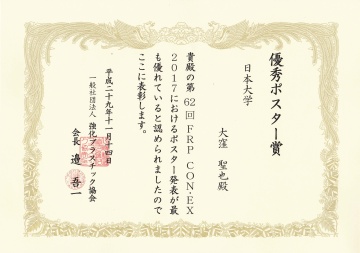 優秀ポスター賞
日本大学
大窪 聖也殿
貴殿の第 62 回 FRP CON-EX
2017におけるポスター発表が最
も優れていると認められましたので
ここに表彰します。
平成二十九年十一月十四日
一般社団法人 強化プラスチック協会
会長 邉 吾一